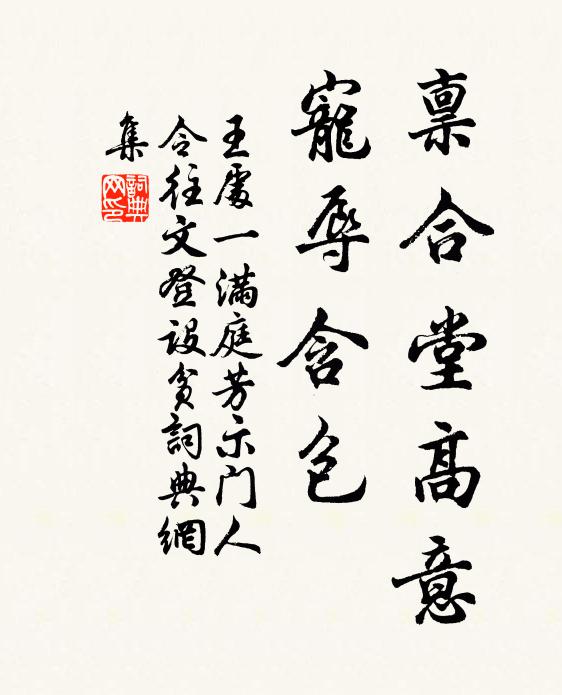 稟合堂高意
寵辱含包
王處一滿庭芳示门人
令往文登設貧詞典網
集
詞典
网印